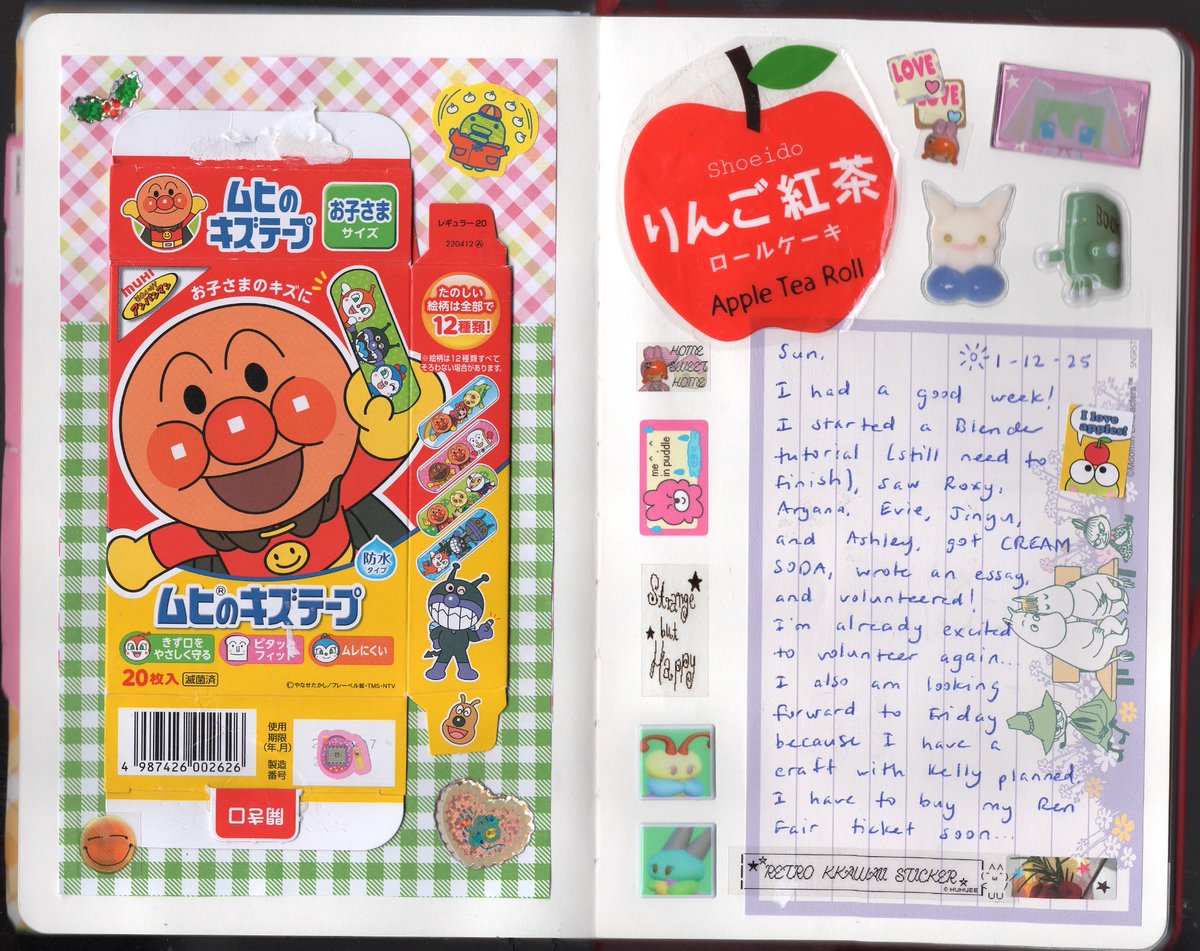 ムヒの
キズテープ
お子さま
サイズ
レギュラー20
220412Ⓐ
MUHI
アンパンマン
お子さまのキズに
たのしい
絵柄は全部で
12種類!
※絵柄は12種類すべて
そろわない場合があります。
防水
タイプ
ムヒ®のキズテープ
きず口を
やさしく守る
ピタッと
フィット
ムレにくい
20枚入 滅菌済
©やなせたかし/フレーベル館・TMS・NTV
4 987426 002626
使用
期限
(年,月)
製造
番号
開き口
Shoeido
りんご紅茶
ロールケーキ
Apple Tea Roll
LOVE
LOVE
BOOK
HOME
SWEET
HOME
me ^.^
in puddle
Strange
but
Happy
Sun. 1-12-25
I had a good week!
I started a Blender
tutorial (still need to
finish), saw Roxy,
Aryana, Evie, Jinyu,
and Ashley, got CREAM
SODA, wrote an essay,
and volunteered!
I'm already excited
to volunteer again...
I also am looking
forward to Friday
because I have a
craft with Kelly planned
I have to buy my Ren
Fair ticket soon...
I love
apples!
RETRO KKAWAII STICKER
© HUHUEE
UU